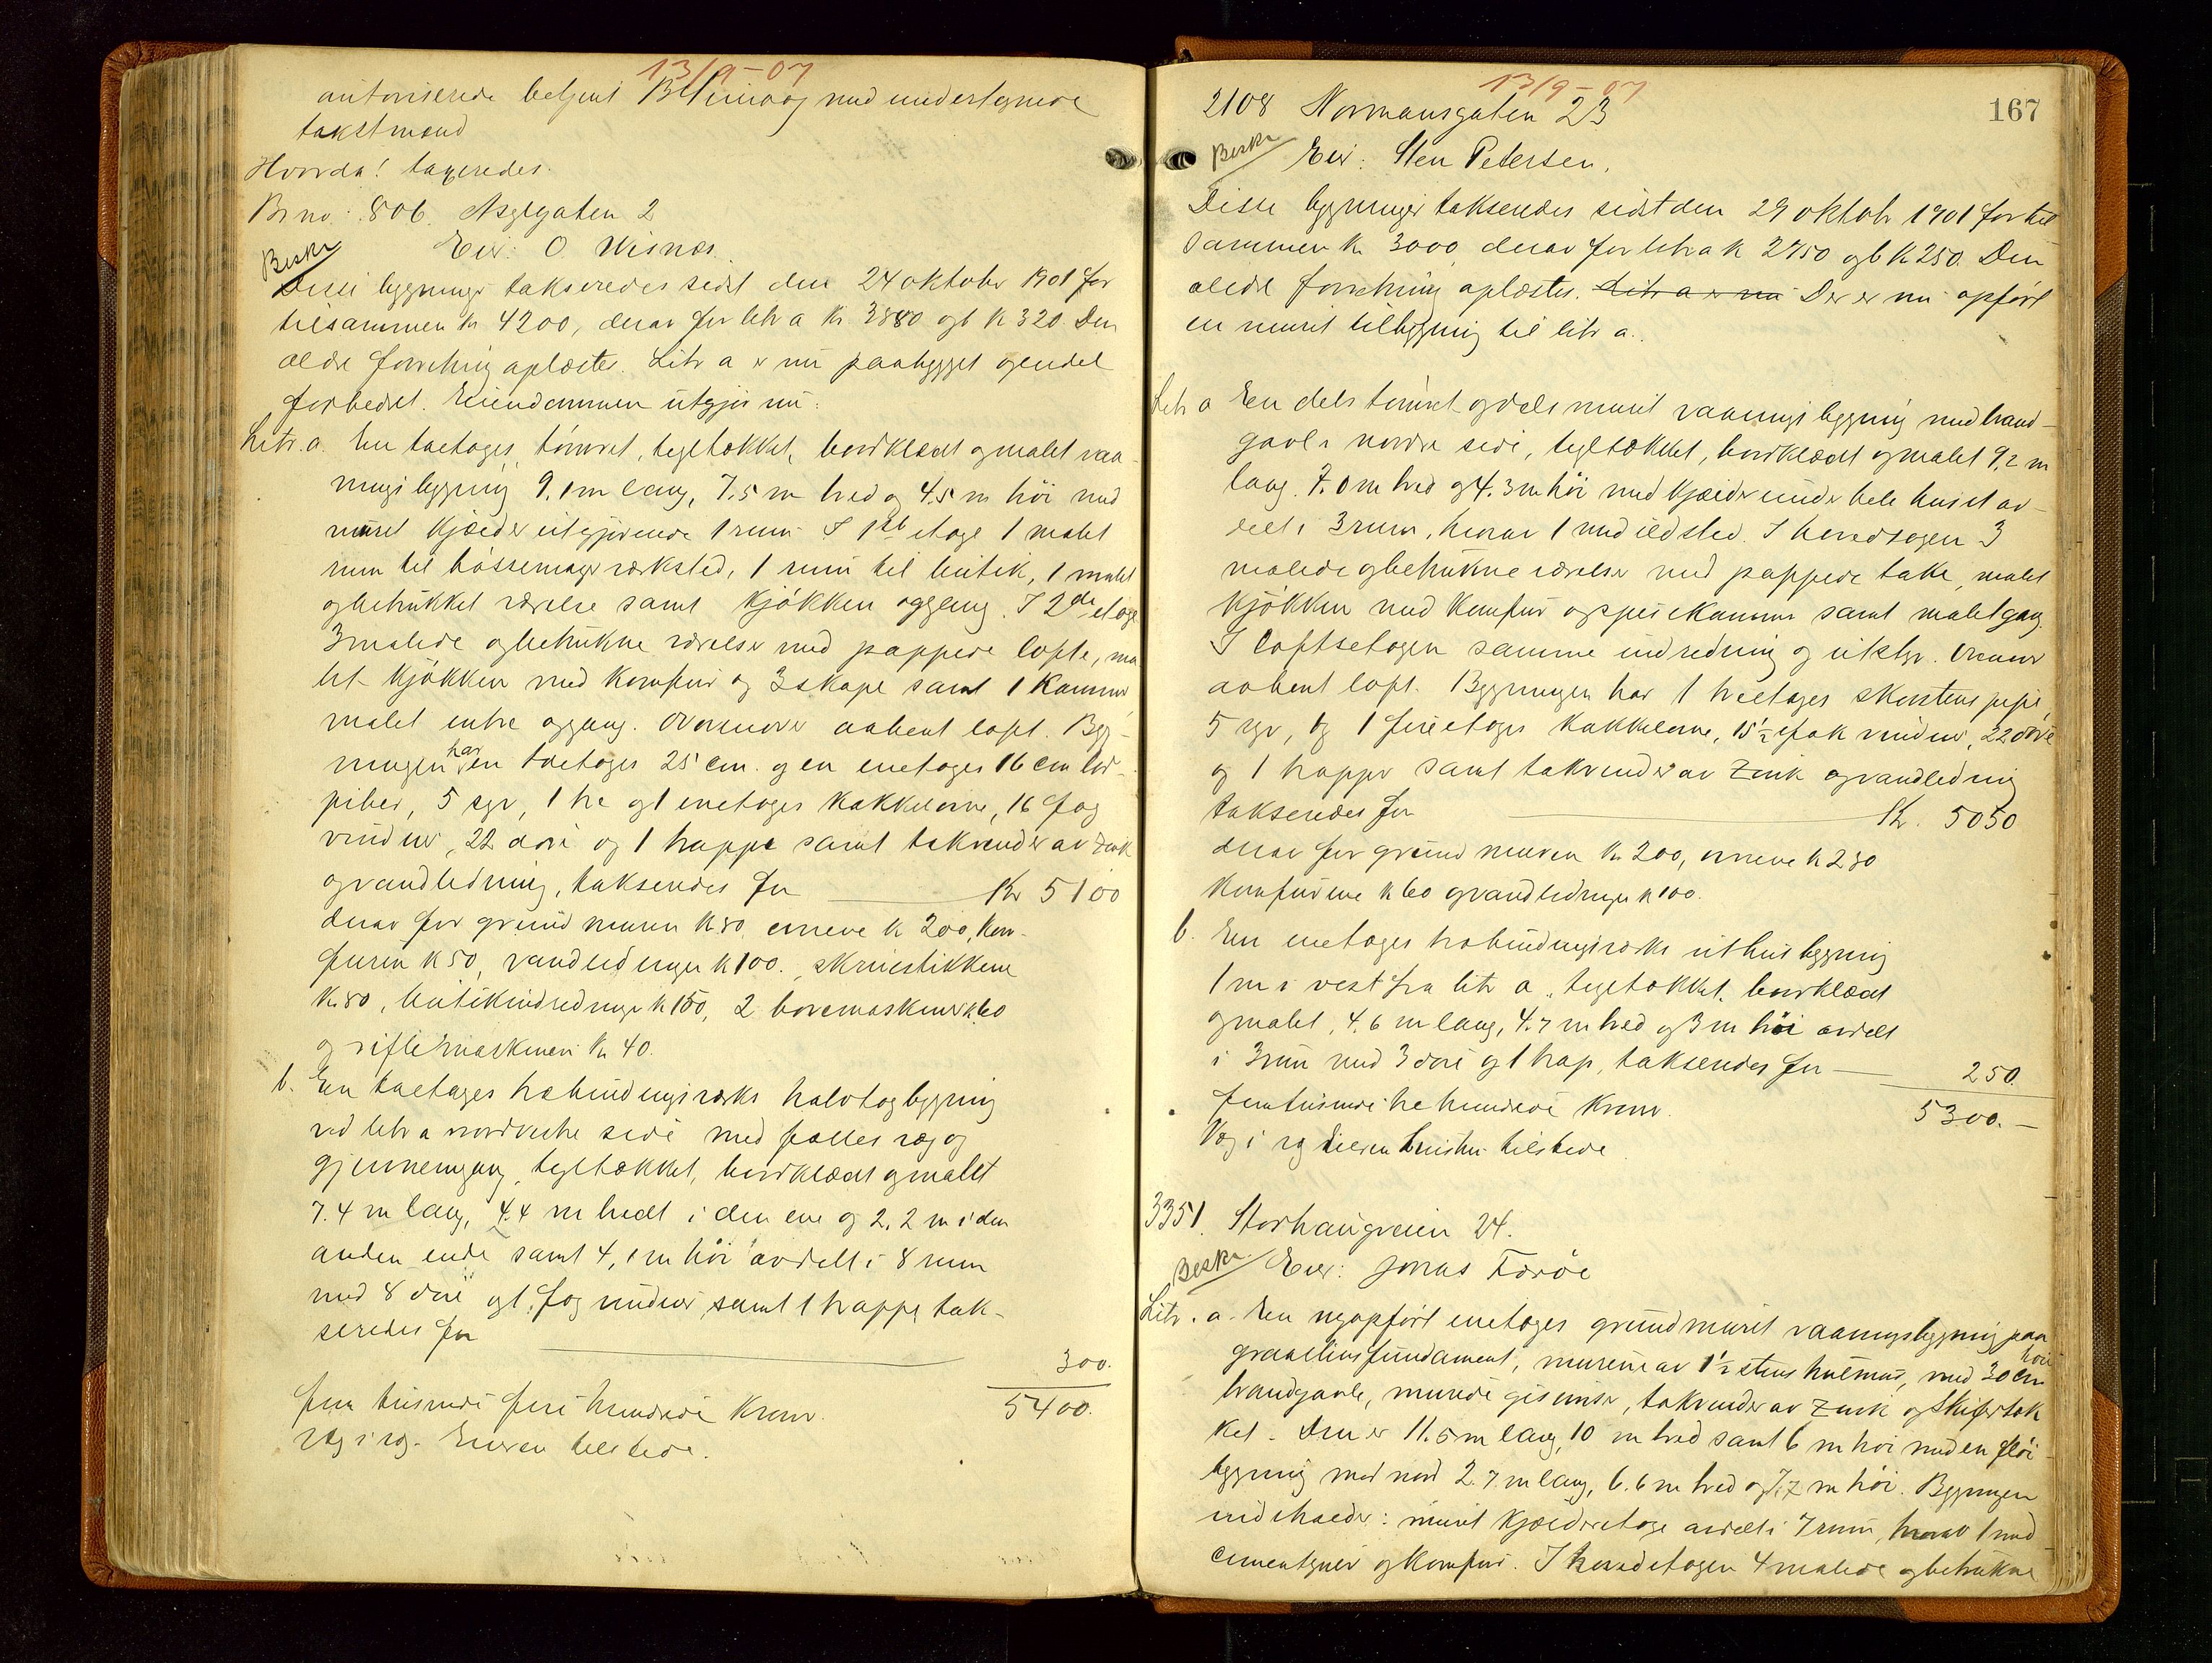 13/9-07
autoriserede betjent med undertegnede
takstmænd
Hvorda! taxeredes.
Br no: 806. Nygaten 2
Beskr
Eier: O. Wisnæs.
Disse bygninger takseredes sidst den 24 oktober 1901 for
tilsammen kr 4200, derav for litr a kr 3880 og b kr 320. Den
ældre forretning oplæstes. Litr a er nu paabygget og endel
forbedret. Eiendommen utgjør nu:
Litr. a. En toetages, tømret, tegltækket, bordklædt og malet vaa-
ningsbygning 9.1 m lang, 7.5 m bred og 4.5 m høi med
muret kjælder utgjørende 1 rum. I 1ste etage 1 malet
rum til bøssemagerværksted, 1 rum til butik, 1 malet
og betrukket værelse samt kjøkken og gang. I 2den etage
3 malede og betrukne værelser med pappede lofte, ma
let kjøkken med komfur og 3 skape samt 1 kammer,
malet entre og gang. Ovenover aabent loft. Byg-
ningen har en toetages 25 cm. og en enetages 16 cm
piber, 5 rør, 1 tre og 1 enetages kakkelovne, 16 fag
vinduer, 22 døre og 1 trappe samt takrender av zink
og vandledning, takseredes for Kr 5100
derav for grundmuren kr 80, ovnene kr 200, kom-
furen kr 50, vandledningen kr 100. skruestikkene
kr 80, butikindredningen kr 150, 2 boremaskiner kr 60
og riflemaskinen kr 40.
b. En toetages træbindingsverks halvtagbygning
ved litr a nordvestre side med fælles væg og
gjennemgang, tegltækket, bordklædt og malet
7.4 m lang, 4.4 m bredt i den ene og 2.2 m i den
anden ende samt 4,1 m høi avdelt i 8 rum
med 8 døre og 1 fag vinduer samt 1 trappe, tak-
seredes for
300.
fem tusinde fire hundrede kroner. 5400.
Væg i væg. Eieren tilstede.
13/9-07
167
2108 Normansgaten 23
Beskr
Eier: Sten Petersen.
Disse bygninger takseredes sidst den 29 oktober 1901 for til
sammen kr 3000, derav for litra a kr 2750 og b kr 250. Den
ældre forretning oplæstes. Litr a er nu Der er nu opført
en muret tilbygning til litr a.
Litr a En dels tømret og dels muret vaaningsbygning med brand-
gavl i nordre side, tegltækket, bordklædt og malet 9,2 m
lang. 7.0 m bred og 4.3 m høi med kjælder under hele huset av-
delt i 3 rum, hvorav 1 med ildsted. I hovedetagen 3
malede og betrukne værelser med pappede take, malet
kjøkken med komfur og spisekammer samt malet gang.
I loftsetagen samme indredning og utstyr. Ovenover
aabent loft. Bygningen har 1 treetages skorstenspipe,
5 rør, og 1 fireetages kakkelovne, 15 1/2 fag vinduer, 22 døre
og 1 trapper samt takrender av zink og vandledning
takseredes for Kr. 5050
derav for grundmuren kr 200, ovnene kr 230
komfurene kr 60 og vandledningen kr 100.
b. En enetages træbindingsverks uthusbygning
1 m i vest fra litr a, tegltækket, bordklædt
og malet, 4.6 m lang, 4.7 m bred og 3 m høi avdelt
i 3 rum med 3 døre og 1 trap, takseredes for 250.
femtusinde tre hundrede kroner. 5300.-
Væg i væg Eieren hustru tilstede.
3351. Storhaugveien 24.
Beskr
Eier: Jonas Færøe
Litr. a. En nyopført enetages grundmuret vaaningsbygning paa
graastensfundament, murene av 1 1/2 stens hulmur, med 30 cm høie
brandgavle, murede gesimser, takrender av zink og skifertæk
ket. Den er 11.5 m lang, 10 m bred samt 6 m høi med en fløi-
bygning mod nord 2.7 m lang, 6.6 m bred og 7.7 m høi. Bygningen
indeholder: muret kjælderetage avdelt i 7 rum, hvorav 1 med
cementgulv og komfur. I hovedetagen 4 malede og betrukne